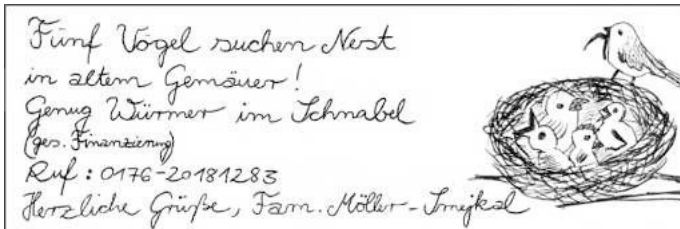 Fünf Vögel suchen Nest
in altem Gemäuer!
Genug Würmer im Schnabel
(ges. Finanzierung)
Ruf: 0176-20181283
Herzliche Grüße, Fam. Möller-Smejkal